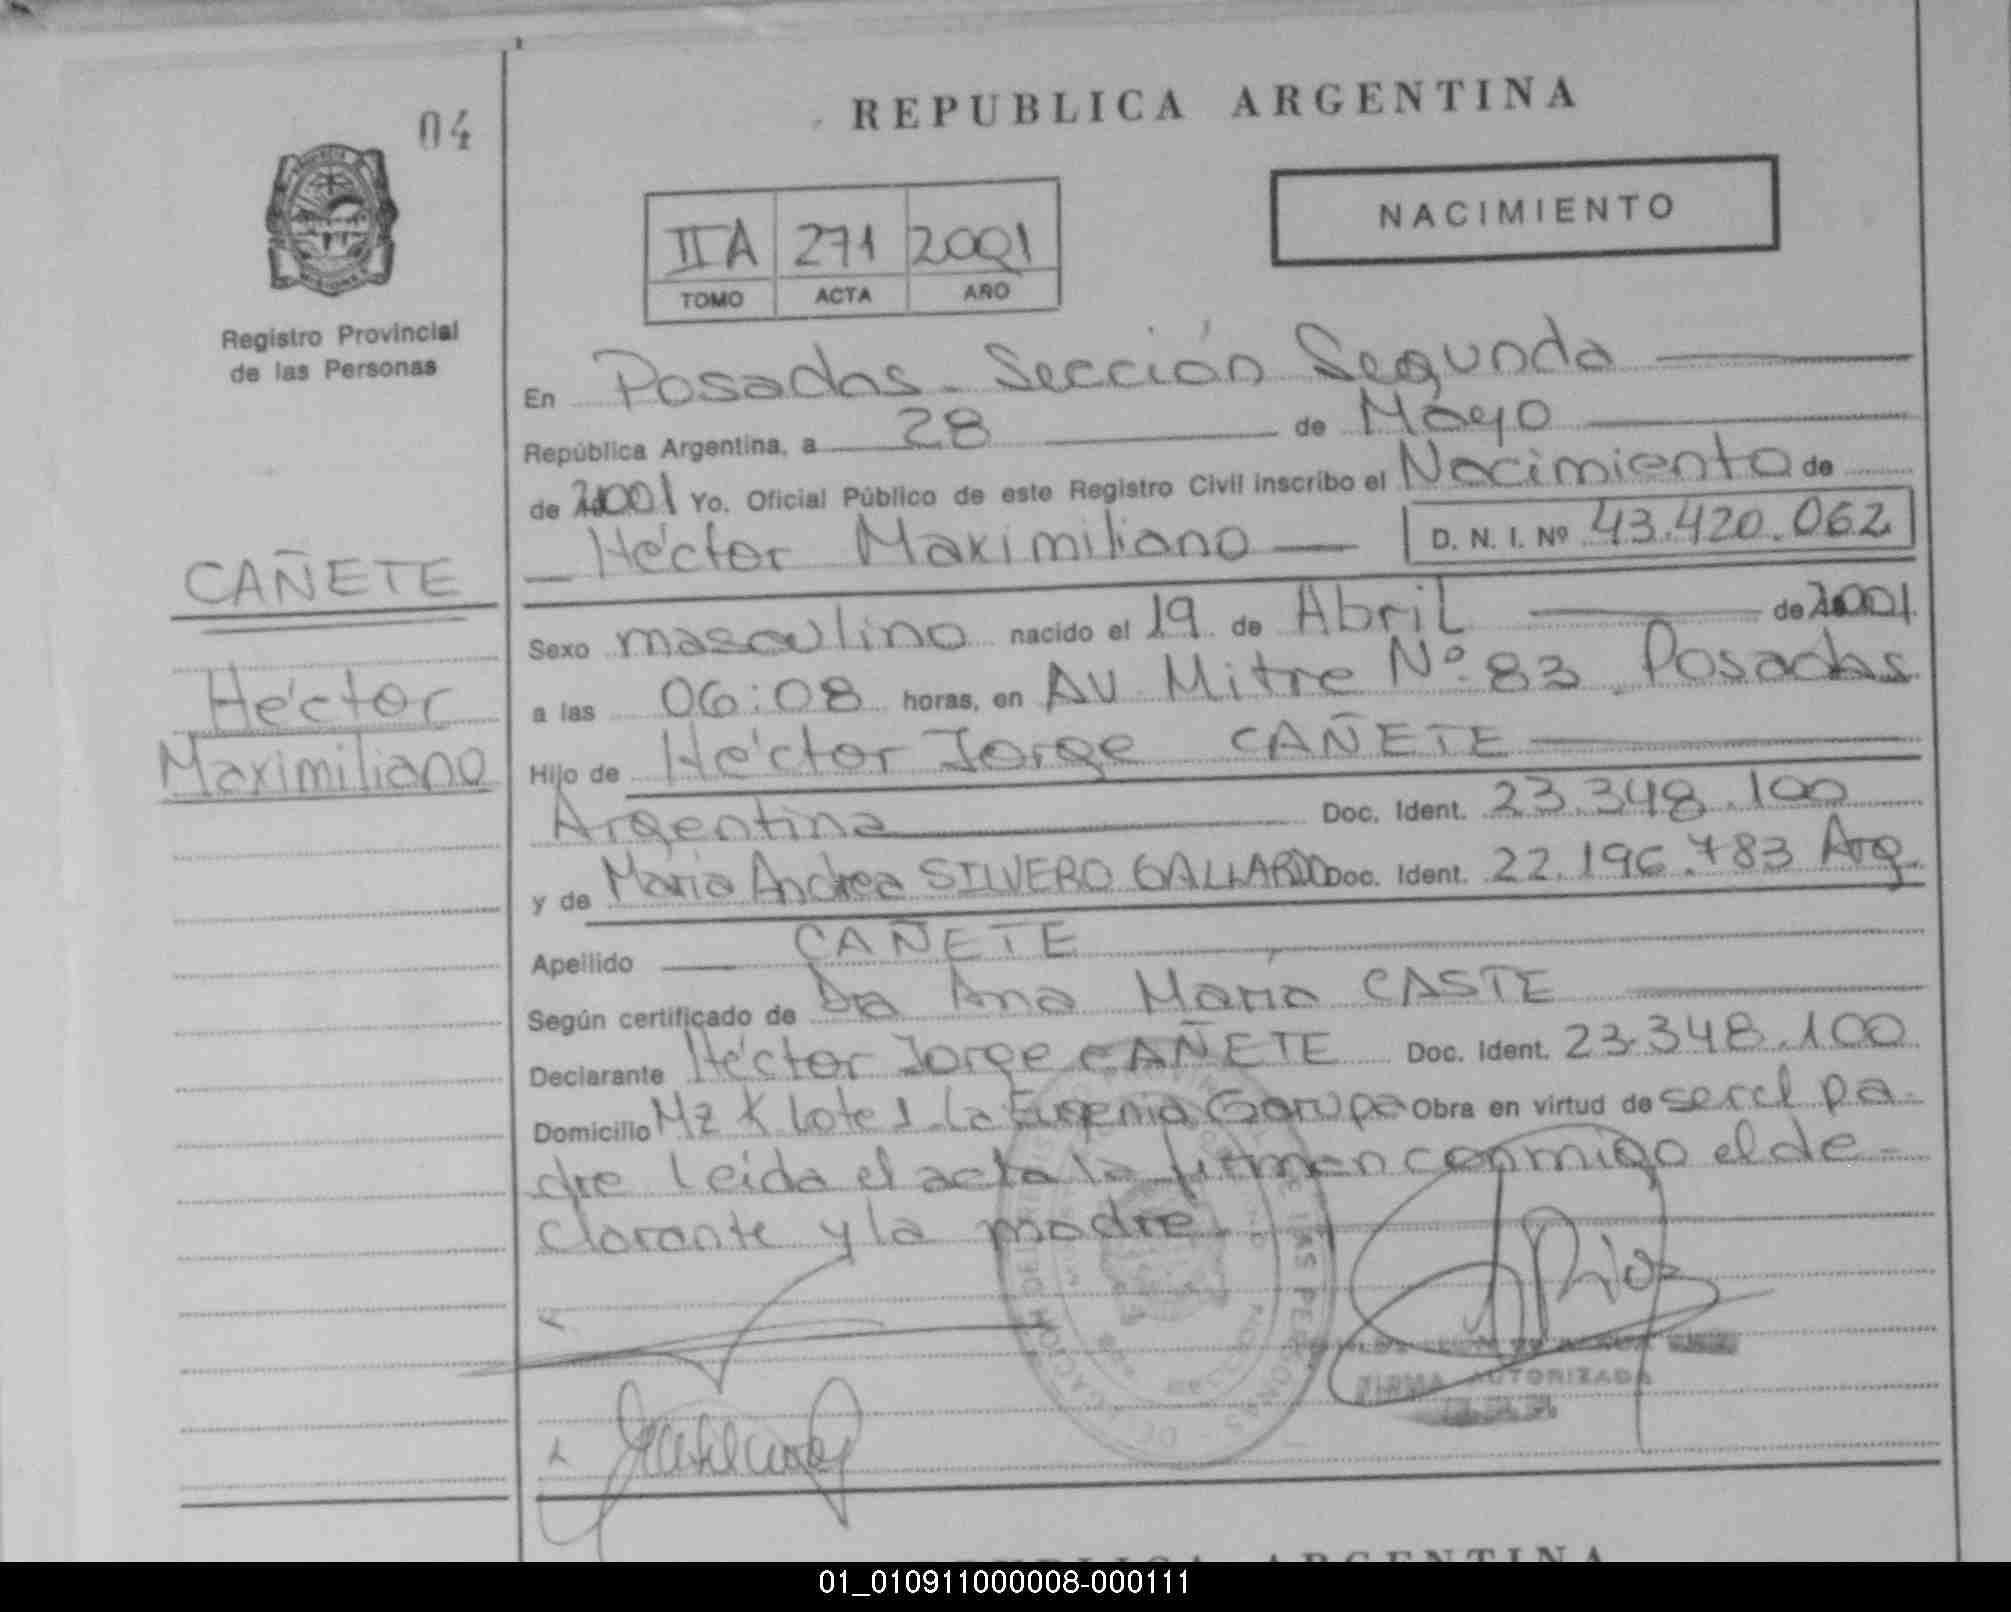 04
REPUBLICA ARGENTINA
NACIMIENTO
IIA 271 2001
TOMO ACTA AÑO
Registro Provincial
de las Personas
En Posadas - Sección Segunda
República Argentina, a 28 de Mayo
de 2001 Yo, Oficial Público de este Registro Civil inscribo el Nacimiento de
Héctor Maximiliano D. N. I. Nº 43.420.062
CAÑETE
Héctor
Maximiliano
Sexo masculino nacido el 19 de Abril de 2001.
a las 06:08 horas, en AV Mitre Nº 83 Posadas
Hijo de Héctor Jorge CAÑETE
Argentina Doc. Ident. 23.348.100
y de María Andrea SILVERO GALLARDO Doc. Ident. 22.196.783 Arg.
Apellido CAÑETE
Según certificado de Dra Ana María CASTE
Declarante Héctor Jorge CAÑETE Doc. Ident. 23.348.100
Domicilio Mz K Lote 1 La Eugenia Garupa Obra en virtud de ser el pa-
dre leida el acta la firman conmigo el de-
clarante y la madre.
FIRMA AUTORIZADA
REPUBLICA ARGENTINA
01_010911000008-000111